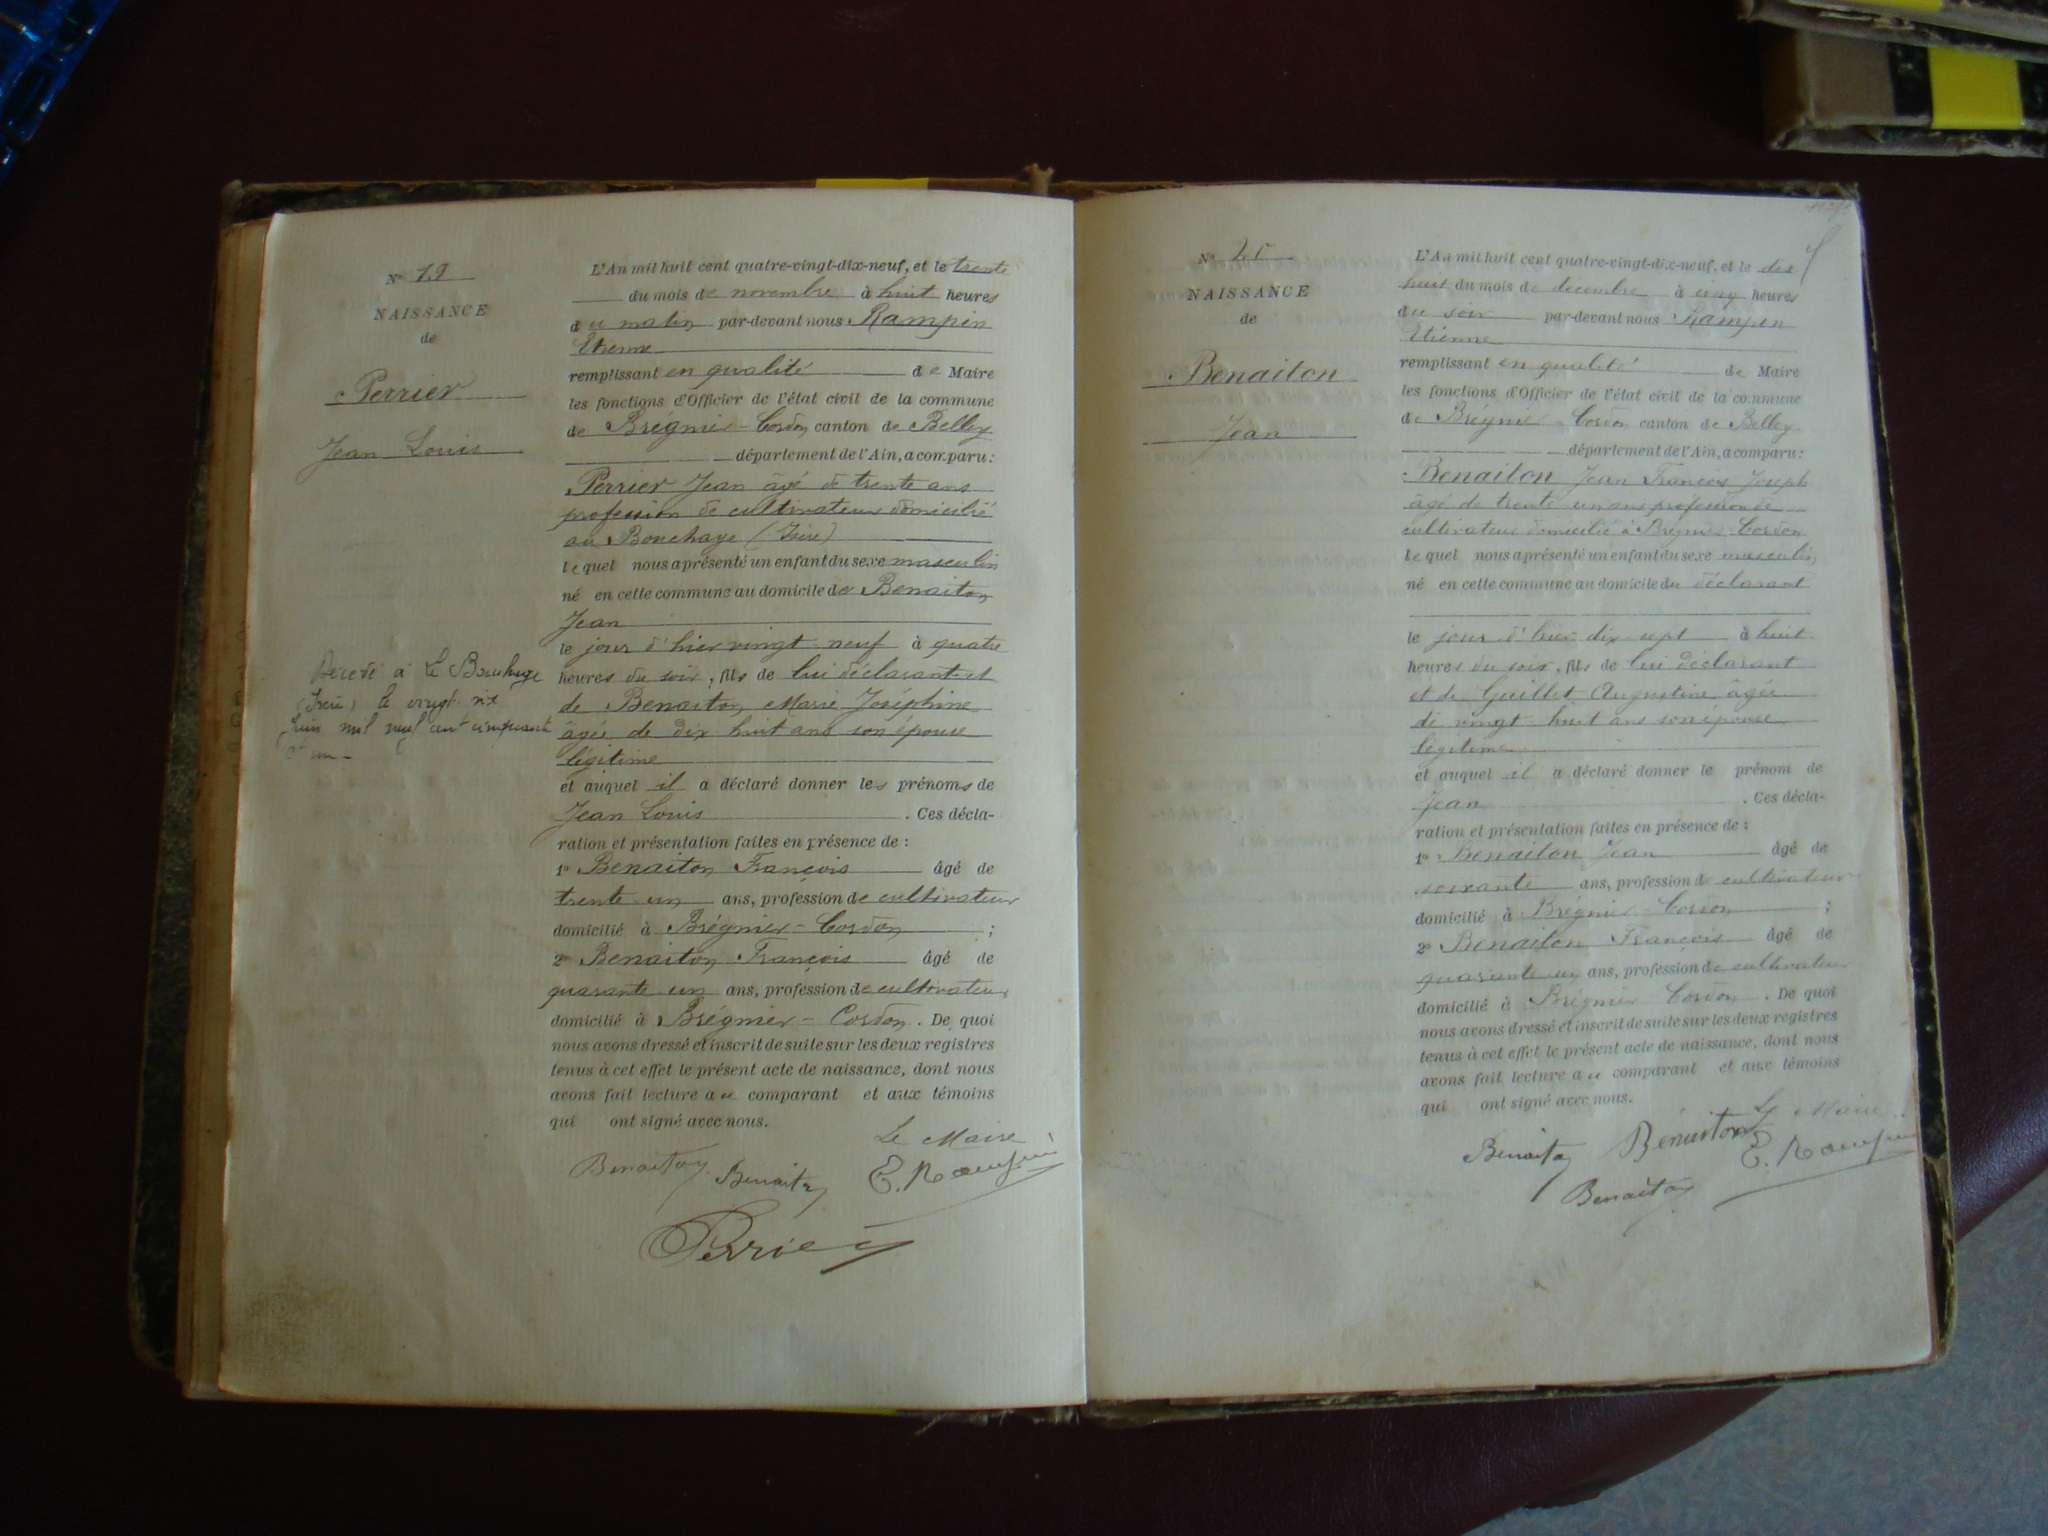 N° 19
NAISSANCE
de
Perrier
Jean Louis
Décédé à Le Bouchage
(Isère) le vingt six
Juin mil neuf cent cinquante
et un -
L'An mil huit cent quatre-vingt-dix-neuf, et le trente
du mois de novembre à huit heures
du matin par-devant nous Rampin
Etienne
remplissant en qualité de Maire
les fonctions d'Officier de l'état civil de la commune
de Brégnier-Cordon, canton de Belley
département de l'Ain, a comparu :
Perrier Jean âgé de trente ans
profession de cultivateur domicilié
au Bouchage (Isère)
lequel nous a présenté un enfant du sexe masculin
né en cette commune au domicile de Benaiton
Jean
le jour d'hier vingt neuf à quatre
heures du soir, fils de lui déclarant et
de Benaiton Marie Joséphine
âgée de dix huit ans son épouse
légitime
et auquel il a déclaré donner les prénoms de
Jean Louis . Ces décla-
ration et présentation faites en présence de :
1° Benaiton François âgé de
trente un ans, profession de cultivateur
domicilié à Brégnier-Cordon ;
2° Benaiton François âgé de
quarante un ans, profession de cultivateur
domicilié à Brégnier-Cordon. De quoi
nous avons dressé et inscrit de suite sur les deux registres
tenus à cet effet le présent acte de naissance, dont nous
avons fait lecture au comparant et aux témoins
qui ont signé avec nous.
Le Maire
Benaiton Benaiton E. Rampin
Perrier
N°
NAISSANCE
de
Benaiton
Jean
L'An mil huit cent quatre-vingt-dix-neuf, et le dix
huit du mois de decembre à cinq heures
du soir par-devant nous Rampin
Etienne
remplissant en qualité de Maire
les fonctions d'Officier de l'état civil de la commune
de Brégnier-Cordon canton de Belley
département de l'Ain, a comparu :
Benaiton Jean François Joseph
âgé de trente un ans profession de
cultivateur domicilié à Brégnier Cordon
lequel nous a présenté un enfant du sexe masculin
né en cette commune au domicile du déclarant
le jour d'hier dix sept à huit
heures du soir, fils de lui déclarant
et de Gaillet Augustine âgée
de vingt huit ans son épouse
légitime
et auquel il a déclaré donner le prénom de
Jean . Ces décla-
ration et présentation faites en présence de :
1° Benaiton Jean âgé de
soixante ans, profession de cultivateur
domicilié à Brégnier-Cordon ;
2° Benaiton François âgé de
quarante un ans, profession de cultivateur
domicilié à Brégnier Cordon. De quoi
nous avons dressé et inscrit de suite sur les deux registres
tenus à cet effet le présent acte de naissance, dont nous
avons fait lecture au comparant et aux témoins
qui ont signé avec nous.
Le Maire
Benaiton Benaiton E. Rampin
Benaiton